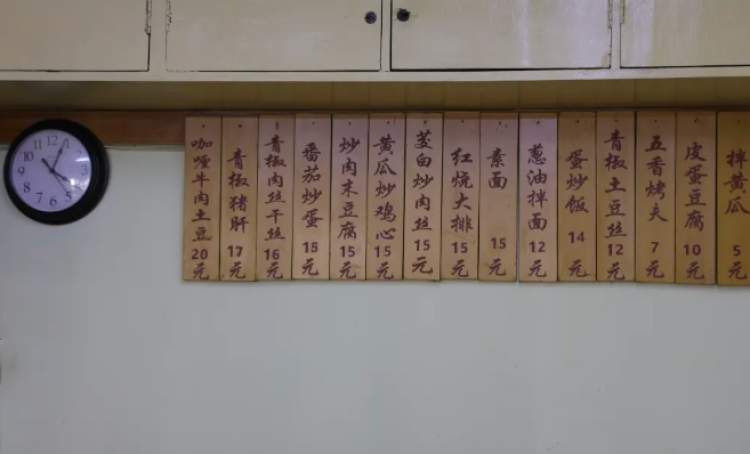 咖喱牛肉土豆 20元
青椒猪肝 17元
青椒肉丝干丝 16元
番茄炒蛋 15元
炒肉末豆腐 15元
黄瓜炒鸡心 15元
茭白炒肉丝 15元
红烧大排 15元
素面 15元
葱油拌面 12元
蛋炒饭 14元
青椒土豆丝 12元
五香烤夫 7元
皮蛋豆腐 10元
拌黄瓜 5元